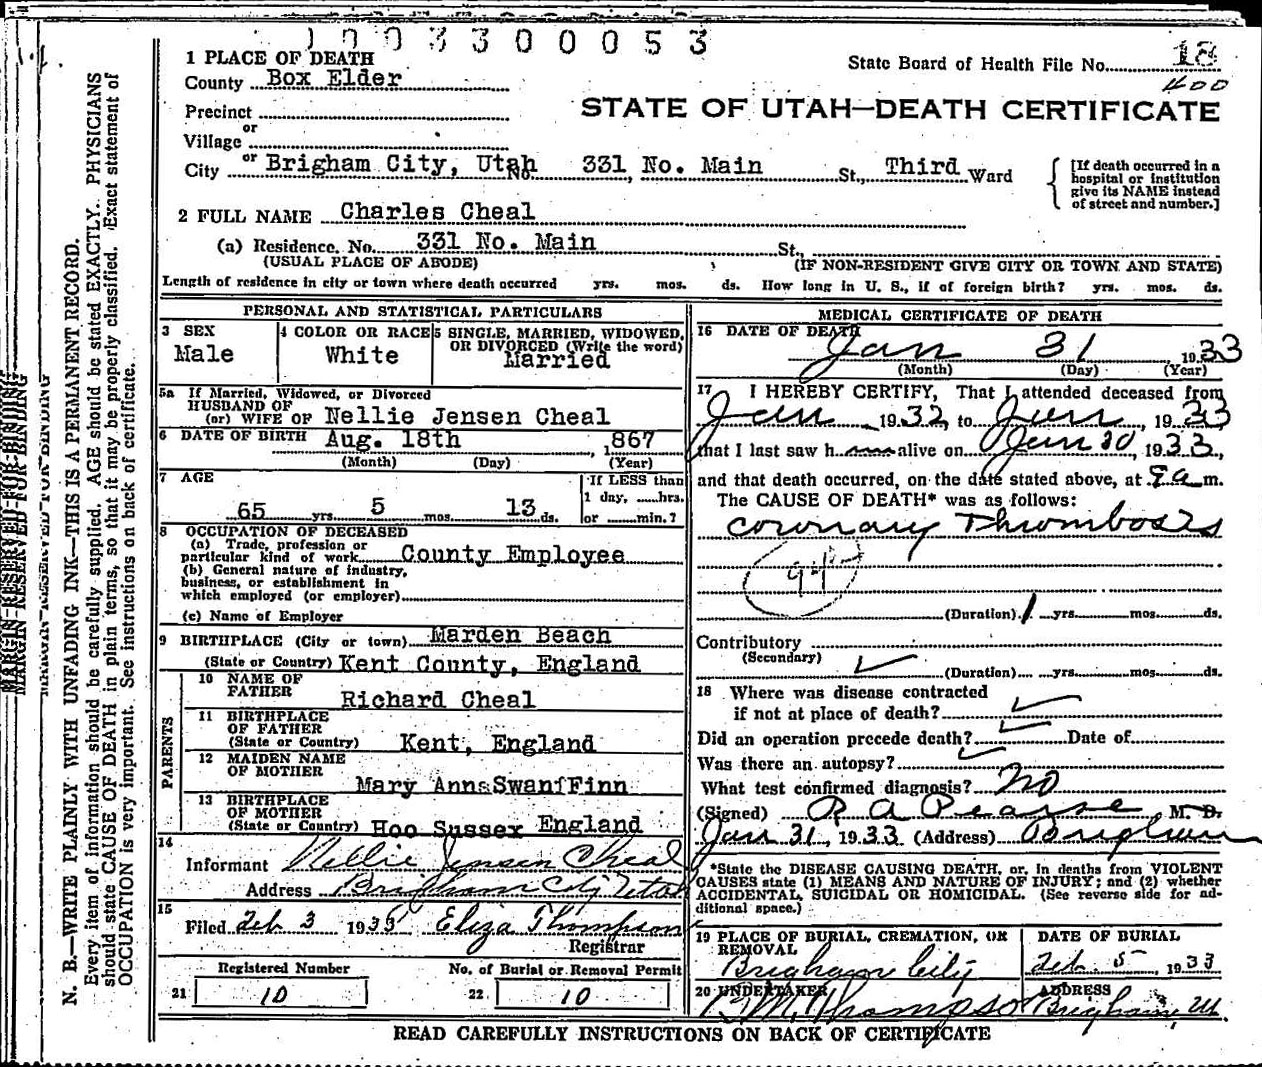 1003300053
1 PLACE OF DEATH
State Board of Health File No. 18
County Box Elder
400
Precinct
STATE OF UTAH—DEATH CERTIFICATE
or
Village
City or Brigham City, Utah No. 331 No. Main St., Third Ward
[If death occurred in a
hospital or institution
give its NAME instead
of street and number.]
2 FULL NAME Charles Cheal
(a) Residence. No. 331 No. Main St.,
(USUAL PLACE OF ABODE) (IF NON-RESIDENT GIVE CITY OR TOWN AND STATE)
Length of residence in city or town where death occurred yrs. mos. ds. How long in U. S., if of foreign birth? yrs. mos. ds.
PERSONAL AND STATISTICAL PARTICULARS
3 SEX
Male
4 COLOR OR RACE
White
5 SINGLE, MARRIED, WIDOWED,
OR DIVORCED (Write the word)
Married
5a If Married, Widowed, or Divorced
HUSBAND OF
(or) WIFE OF Nellie Jensen Cheal
6 DATE OF BIRTH Aug. 18th, 1867
(Month) (Day) (Year)
7 AGE
65 yrs. 5 mos. 13 ds.
If LESS than
1 day, ......hrs.
or ......min.?
8 OCCUPATION OF DECEASED
(a) Trade, profession or
particular kind of work County Employee
(b) General nature of industry,
business, or establishment in
which employed (or employer)
(c) Name of Employer
9 BIRTHPLACE (City or town) Marden Beach
(State or Country) Kent County, England
PARENTS
10 NAME OF
FATHER
Richard Cheal
11 BIRTHPLACE
OF FATHER
(State or Country) Kent, England
12 MAIDEN NAME
OF MOTHER
Mary Ann Swan Finn
13 BIRTHPLACE
OF MOTHER
(State or Country) Hoo Sussex England
14
Informant Nellie Jensen Cheal
Address Brigham City Utah
15
Filed Feb 3 1933 Eliza Thompson
Registrar
Registered Number
21 10
No. of Burial or Removal Permit
22 10
MEDICAL CERTIFICATE OF DEATH
16 DATE OF DEATH
Jan 31, 1933
(Month) (Day) (Year)
17 I HEREBY CERTIFY, That I attended deceased from
Jan 1932, to Jan, 1933
that I last saw h alive on Jan 30, 1933,
and that death occurred, on the date stated above, at 9 a m.
The CAUSE OF DEATH* was as follows:
Coronary Thrombosis
94
(Duration) 1 yrs. mos. ds.
Contributory
(Secondary)
(Duration) yrs. mos. ds.
18 Where was disease contracted
if not at place of death?
Did an operation precede death? Date of
Was there an autopsy?
What test confirmed diagnosis? No
(Signed) R A Pearse M. D.
Jan 31, 1933 (Address) Brigham
*State the DISEASE CAUSING DEATH, or, in deaths from VIOLENT
CAUSES state (1) MEANS AND NATURE OF INJURY; and (2) whether
ACCIDENTAL, SUICIDAL OR HOMICIDAL. (See reverse side for ad-
ditional space.)
19 PLACE OF BURIAL, CREMATION, OR
REMOVAL
Brigham City
DATE OF BURIAL
Feb. 5, 1933
20 UNDERTAKER
Thompson
ADDRESS
Brigham, Ut
READ CAREFULLY INSTRUCTIONS ON BACK OF CERTIFICATE
MARGIN RESERVED FOR BINDING
N. B.—WRITE PLAINLY WITH UNFADING INK—THIS IS A PERMANENT RECORD.
Every item of information should be carefully supplied. AGE should be stated EXACTLY. PHYSICIANS
should state CAUSE OF DEATH in plain terms, so that it may be properly classified. Exact statement of
OCCUPATION is very important. See instructions on back of certificate.